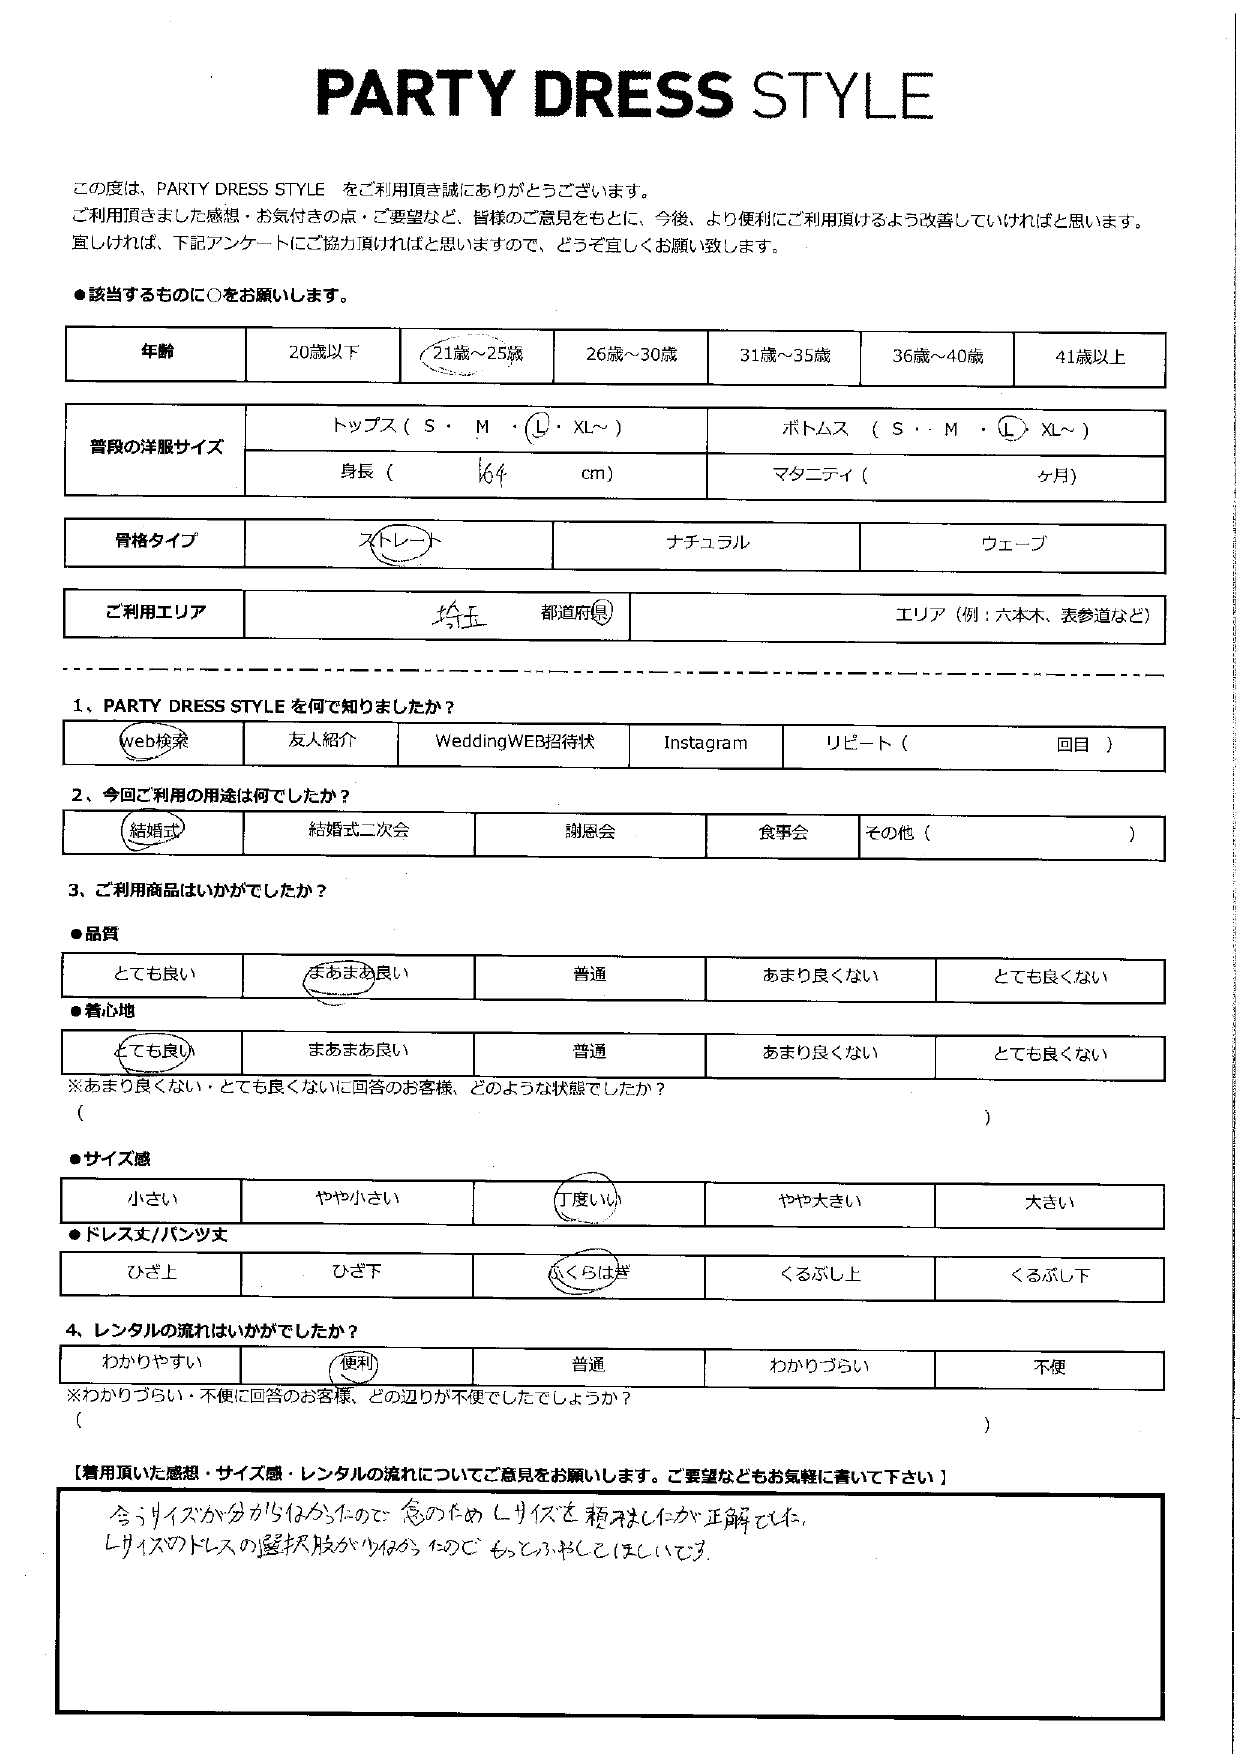 PARTY DRESS STYLE
この度は、PARTY DRESS STYLE をご利用頂き誠にありがとうございます。
ご利用頂きました感想・お気付きの点・ご要望など、皆様のご意見をもとに、今後、より便利にご利用頂けるよう改善していければと思います。
宜しければ、下記アンケートにご協力頂ければと思いますので、どうぞ宜しくお願い致します。
●該当するものに○をお願いします。
年齢 20歳以下 21歳～25歳 26歳～30歳 31歳～35歳 36歳～40歳 41歳以上
普段の洋服サイズ トップス ( S ・ M ・ L ・ XL～ ) ボトムス ( S ・ M ・ L ・ XL～ )
身長 ( 164 cm) マタニティ ( ヶ月)
骨格タイプ ストレート ナチュラル ウェーブ
ご利用エリア 埼玉 都道府県 エリア（例：六本木、表参道など）
1、PARTY DRESS STYLE を何で知りましたか？
web検索 友人紹介 WeddingWEB招待状 Instagram リピート ( 回目 )
2、今回ご利用の用途は何でしたか？
結婚式 結婚式二次会 謝恩会 食事会 その他 ( )
3、ご利用商品はいかがでしたか？
●品質
とても良い まあまあ良い 普通 あまり良くない とても良くない
●着心地
とても良い まあまあ良い 普通 あまり良くない とても良くない
※あまり良くない・とても良くないに回答のお客様、どのような状態でしたか？
( )
●サイズ感
小さい やや小さい 丁度いい やや大きい 大きい
●ドレス丈/パンツ丈
ひざ上 ひざ下 ふくらはぎ くるぶし上 くるぶし下
4、レンタルの流れはいかがでしたか？
わかりやすい 便利 普通 わかりづらい 不便
※わかりづらい・不便に回答のお客様、どの辺りが不便でしたでしょうか？
( )
【着用頂いた感想・サイズ感・レンタルの流れについてご意見をお願いします。ご要望などもお気軽に書いて下さい】
合うサイズが分からなかったので 念のため Lサイズを 頼みましたが正解でした。
Lサイズのドレスの選択肢が少なかったので もっとふやしてほしいです。